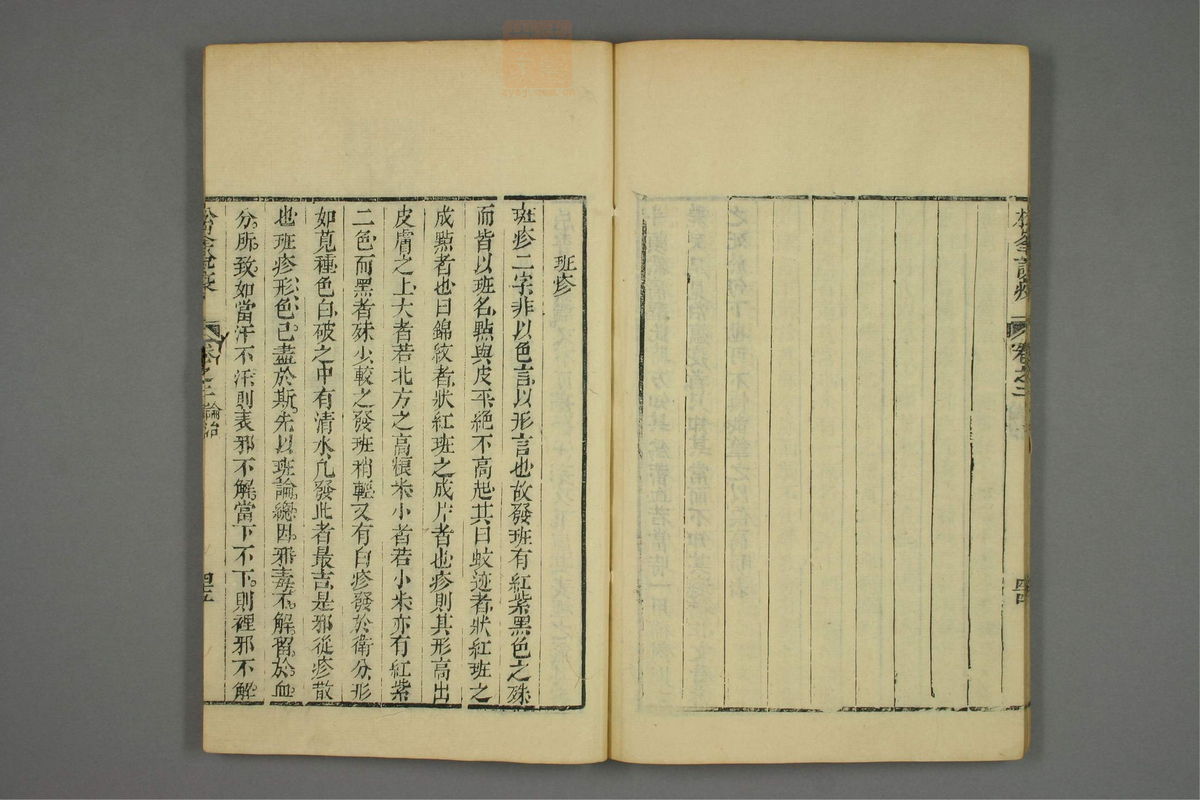 松峯說疫
卷之二
四四
班疹
班疹二字非以色言以形言也故發班有紅紫黑色之殊
而皆以班名點與皮平絕不高起其曰蚊迹者狀紅班之
成點者也曰錦紋者狀紅班之成片者也疹則其形高出
皮膚之上大者若北方之高粮米小者若小米亦有紅紫
二色而黑者殊少較之發班稍輕又有白疹發於衛分形
如莧種色白破之中有清水凡發此者最吉是邪從疹散
也班疹形色已盡於斯先以班論總因邪毒不解留於血
分所致如當汗不汗則表邪不解當下不下則裡邪不解
松峯說疫
卷之二
論治
四五